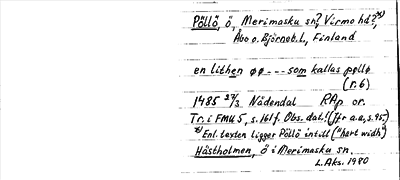 Pöllö, ö, Merimasku sn? Virmo hd?*)
Åbo o. Björneb. L., Finland
en lithen øø --- som kallas pøllø
(r. 6)
1485 27/3 Nådendal RAp or.
Tr. i FMU 5, s. 161 f. Obs. dat.! (Jfr a.a, s. 95.)
*) Enl. texten ligger Pöllö intill ("hart widh")
Hästholmen, ö i Merimasku sn.
L. Aks. 1980